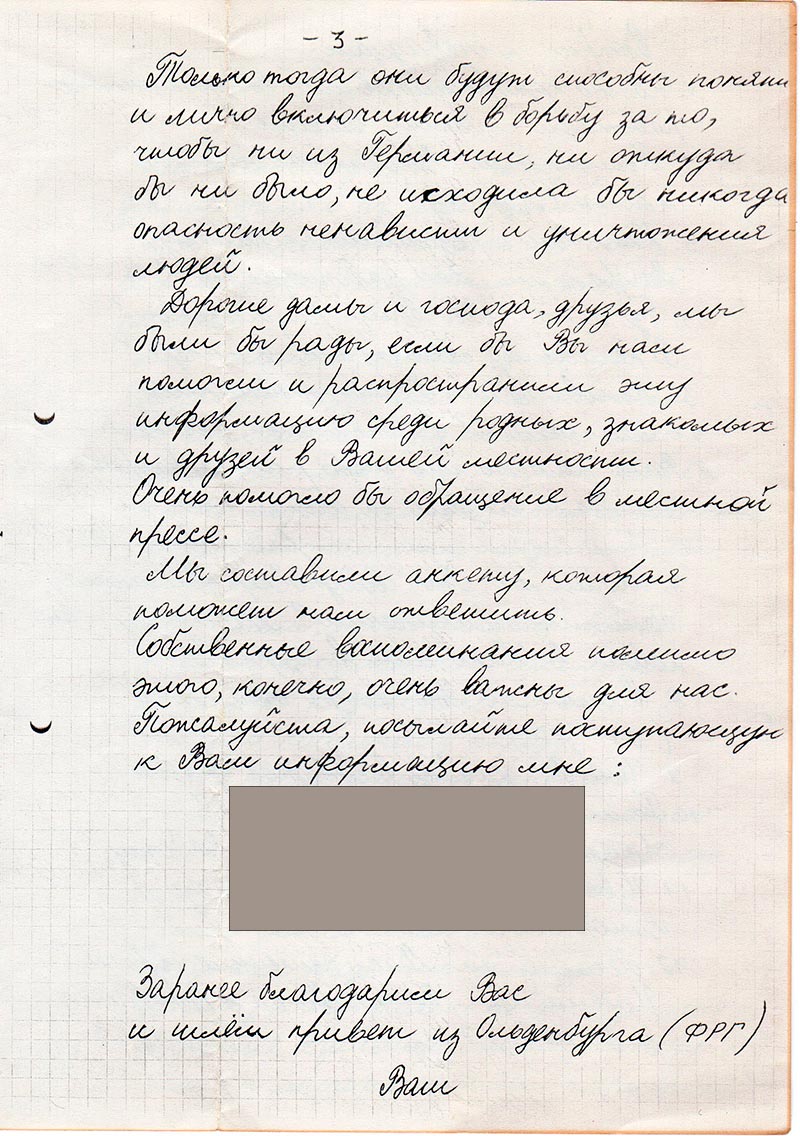 - 3 -
Только тогда они будут способны понять
и лично включиться в борьбу за то,
чтобы ни из Германии, ни откуда
бы ни было, не исходила бы никогда
опасность ненависти и уничтожения
людей.
Дорогие дамы и господа, друзья, мы
были бы рады, если бы Вы нам
помогли и распространили эту
информацию среди родных, знакомых
и друзей в Вашей местности.
Очень помогло бы обращение в местной
прессе.
Мы составили анкету, которая
поможет нам ответить.
Собственные воспоминания помимо
этого, конечно, очень важны для нас.
Пожалуйста, посылайте поступающую
к Вам информацию мне:
Заранее благодарим Вас
и шлём привет из Ольденбурга (ФРГ)
Ваш